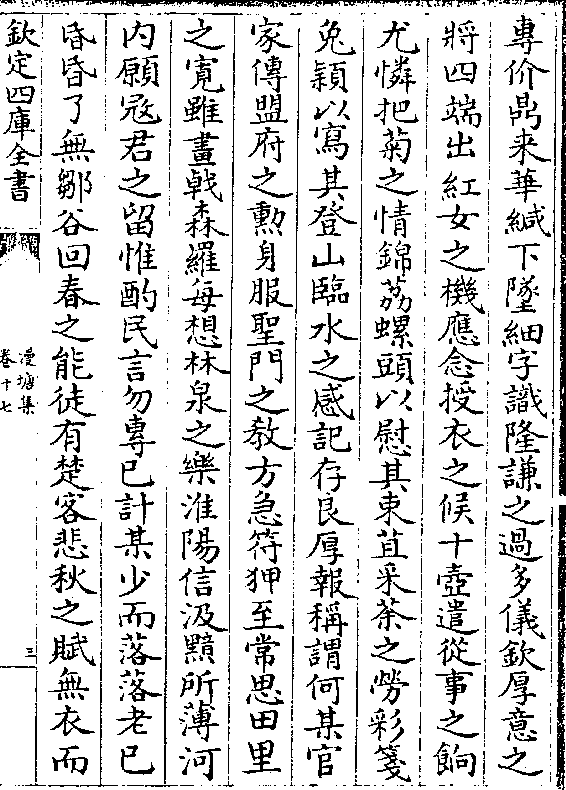 專价鼎来華緘下墜細字識隆謙之過多儀欽厚意之
將四端出紅女之機應念授衣之候十壺遣從事之餉
尤憐把菊之情錦荔螺頭以慰其束苴采茶之勞彩箋
兔穎以寫其登山臨水之感記存良厚報稱謂何某官
家傳盟府之勲身服聖門之教方急符狎至常思田里
之寛雖畫㦸森羅每想林泉之樂淮陽信汲黯所薄河
内願冦君之留惟酌民言勿專已計某少而落落老已
昏昏了無鄒谷回春之能徒有楚客悲秋之賦無衣而
欽定四庫全書
漫塘集
卷十七
三